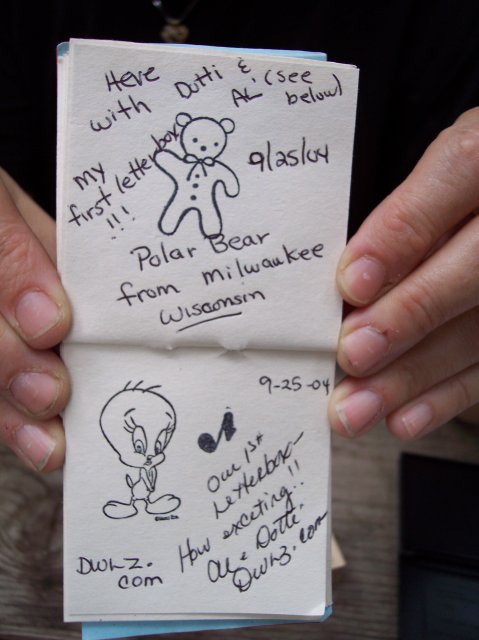 Here with Dotti & AL (see below)
my first letterbox !!!
9/25/04
Polar Bear
from milwaukee
Wisconsin
9-25-04
our 1st
Letterbox-
How exciting..!!
AL & Dotti.
DWLZ.com
DWLZ.
com